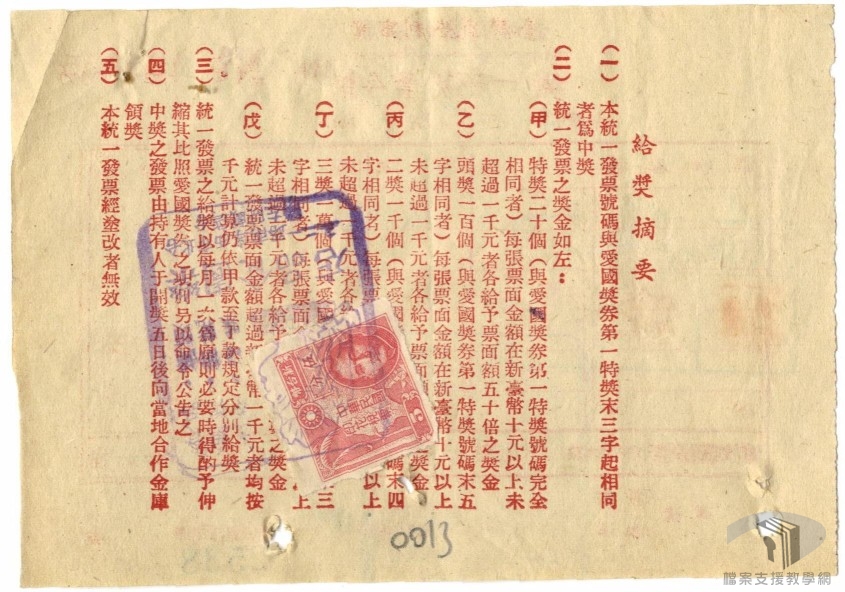 給獎摘要
(一)本統一發票號碼與愛國獎券第一特獎末三字起相同
者爲中獎
(二)統一發票之獎金如左：
(甲)特獎二十個(與愛國獎券第一特獎號碼完全
相同者)每張票面金額在新臺幣十元以上未
超過一千元者各給予票面額五十倍之獎金
(乙)頭獎一百個(與愛國獎券第一特獎號碼末五
字相同者)每張票面金額在新臺幣十元以上
未超過一千元者各給予票面 獎金
(丙)二獎一千個(與愛國 碼末四
字相同者)每張票 以上
未超過一千元者各 獎金
(丁)三獎一萬個(與愛國 三
字相同者)每張票面金 上
未超過一千元者各給予 之獎金
(戊)統一發票票面金額超過新 幣一千元者均按
千元計算仍依甲款至丁款規定分別給獎
(三)統一發票之給獎以每月一次爲原則必要時得酌予伸
縮其比照愛國獎券之項別另以命令公告之
(四)中獎之發票由持有人于開獎五日後向當地合作金庫
領獎
(五)本統一發票經塗改者無效
0013
檔案支援教學網